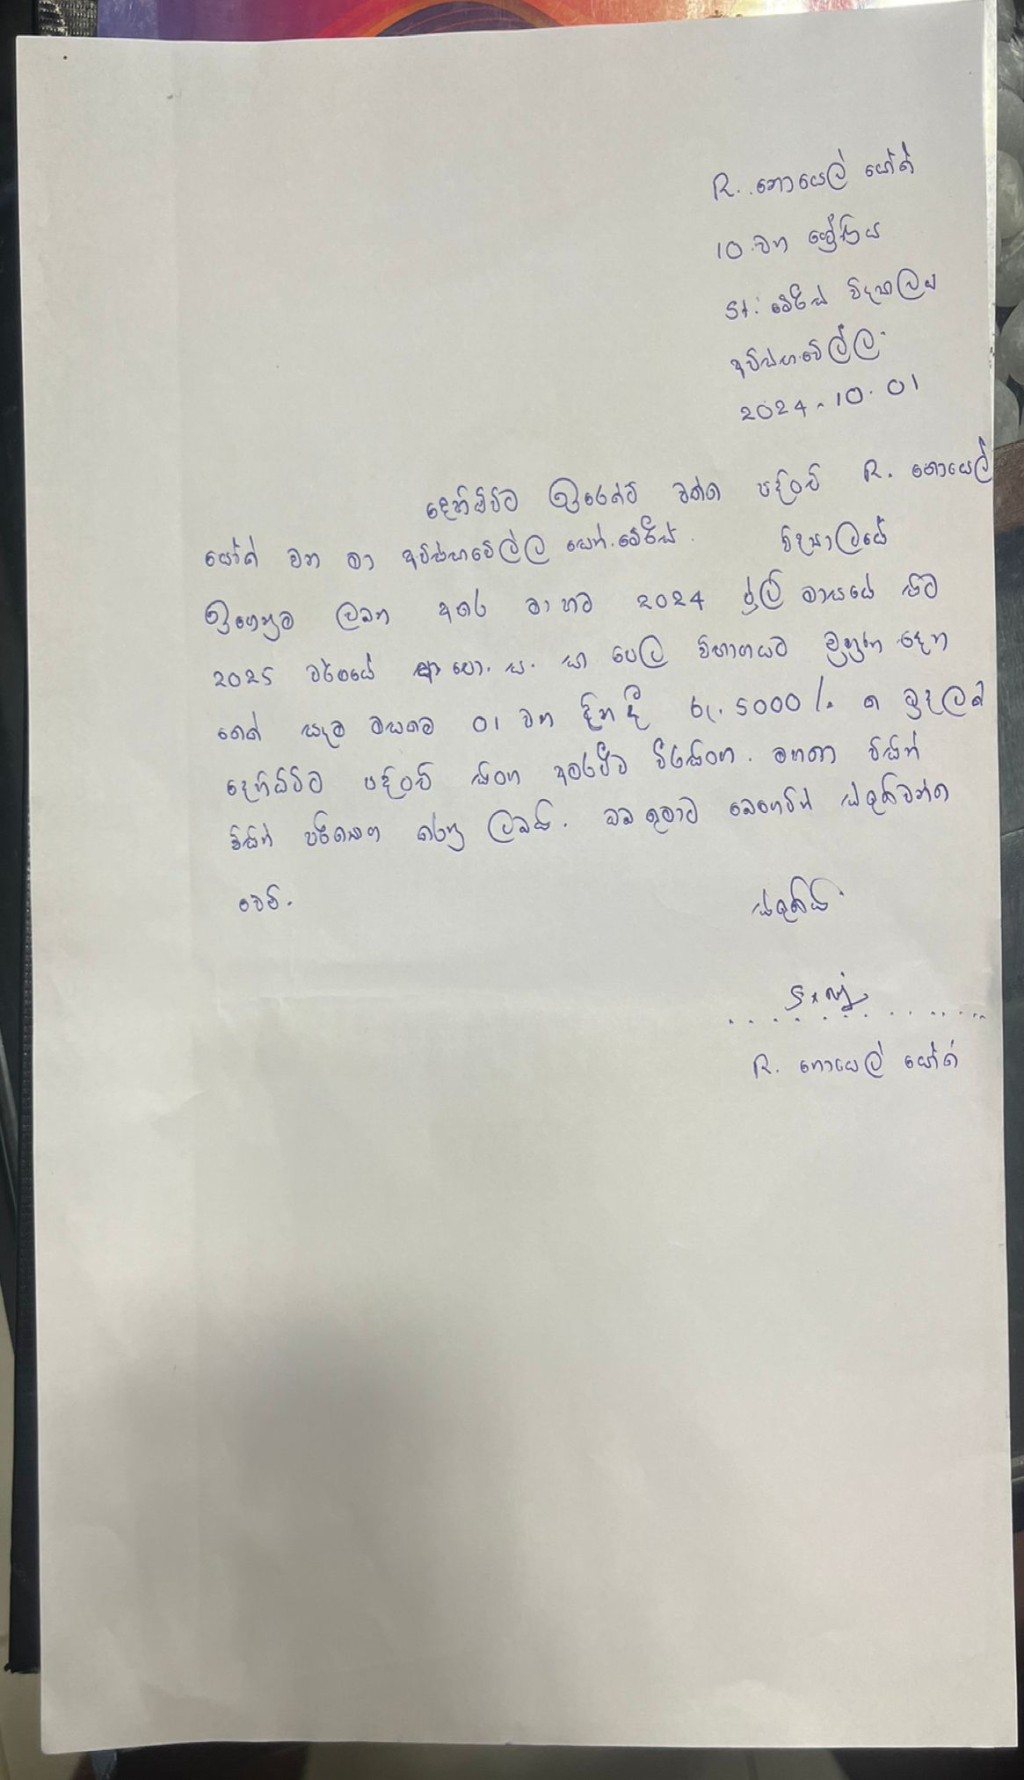 R. නොයෙල් යෝග්
10 වන ශ්‍රේණිය
St. මේරිස් විද්‍යාලය
අවිස්සාවේල්ල.
2024-10-01
දෙහිඕවිට වත්ත පදිංචි R. නොයෙල්
යෝග් වන මා අවිස්සාවේල්ල සෙන්.මේරිස්. විද්‍යාලයේ
ඉගෙනුම ලබන අතර මා හට 2024 ජූලි මාසයේ සිට
2025 වර්ෂයේ අ.පො.ස. සා පෙල විභාගයට මුහුණ දෙන
තෙක් සෑම මසකම 01 වන දින දී රු. 5000/. ක මුදලක්
දෙහිඕවිට පදිංචි සිංහ අමරජීව වීරසිංහ. මහතා විසින්
විසින් පරිත්‍යාග කරනු ලබයි. එබඳුමාට බෙහෙවින් ස්තුතිවන්ත
වෙමි.
ස්තුතියි.
R. නොයෙල් යෝග්